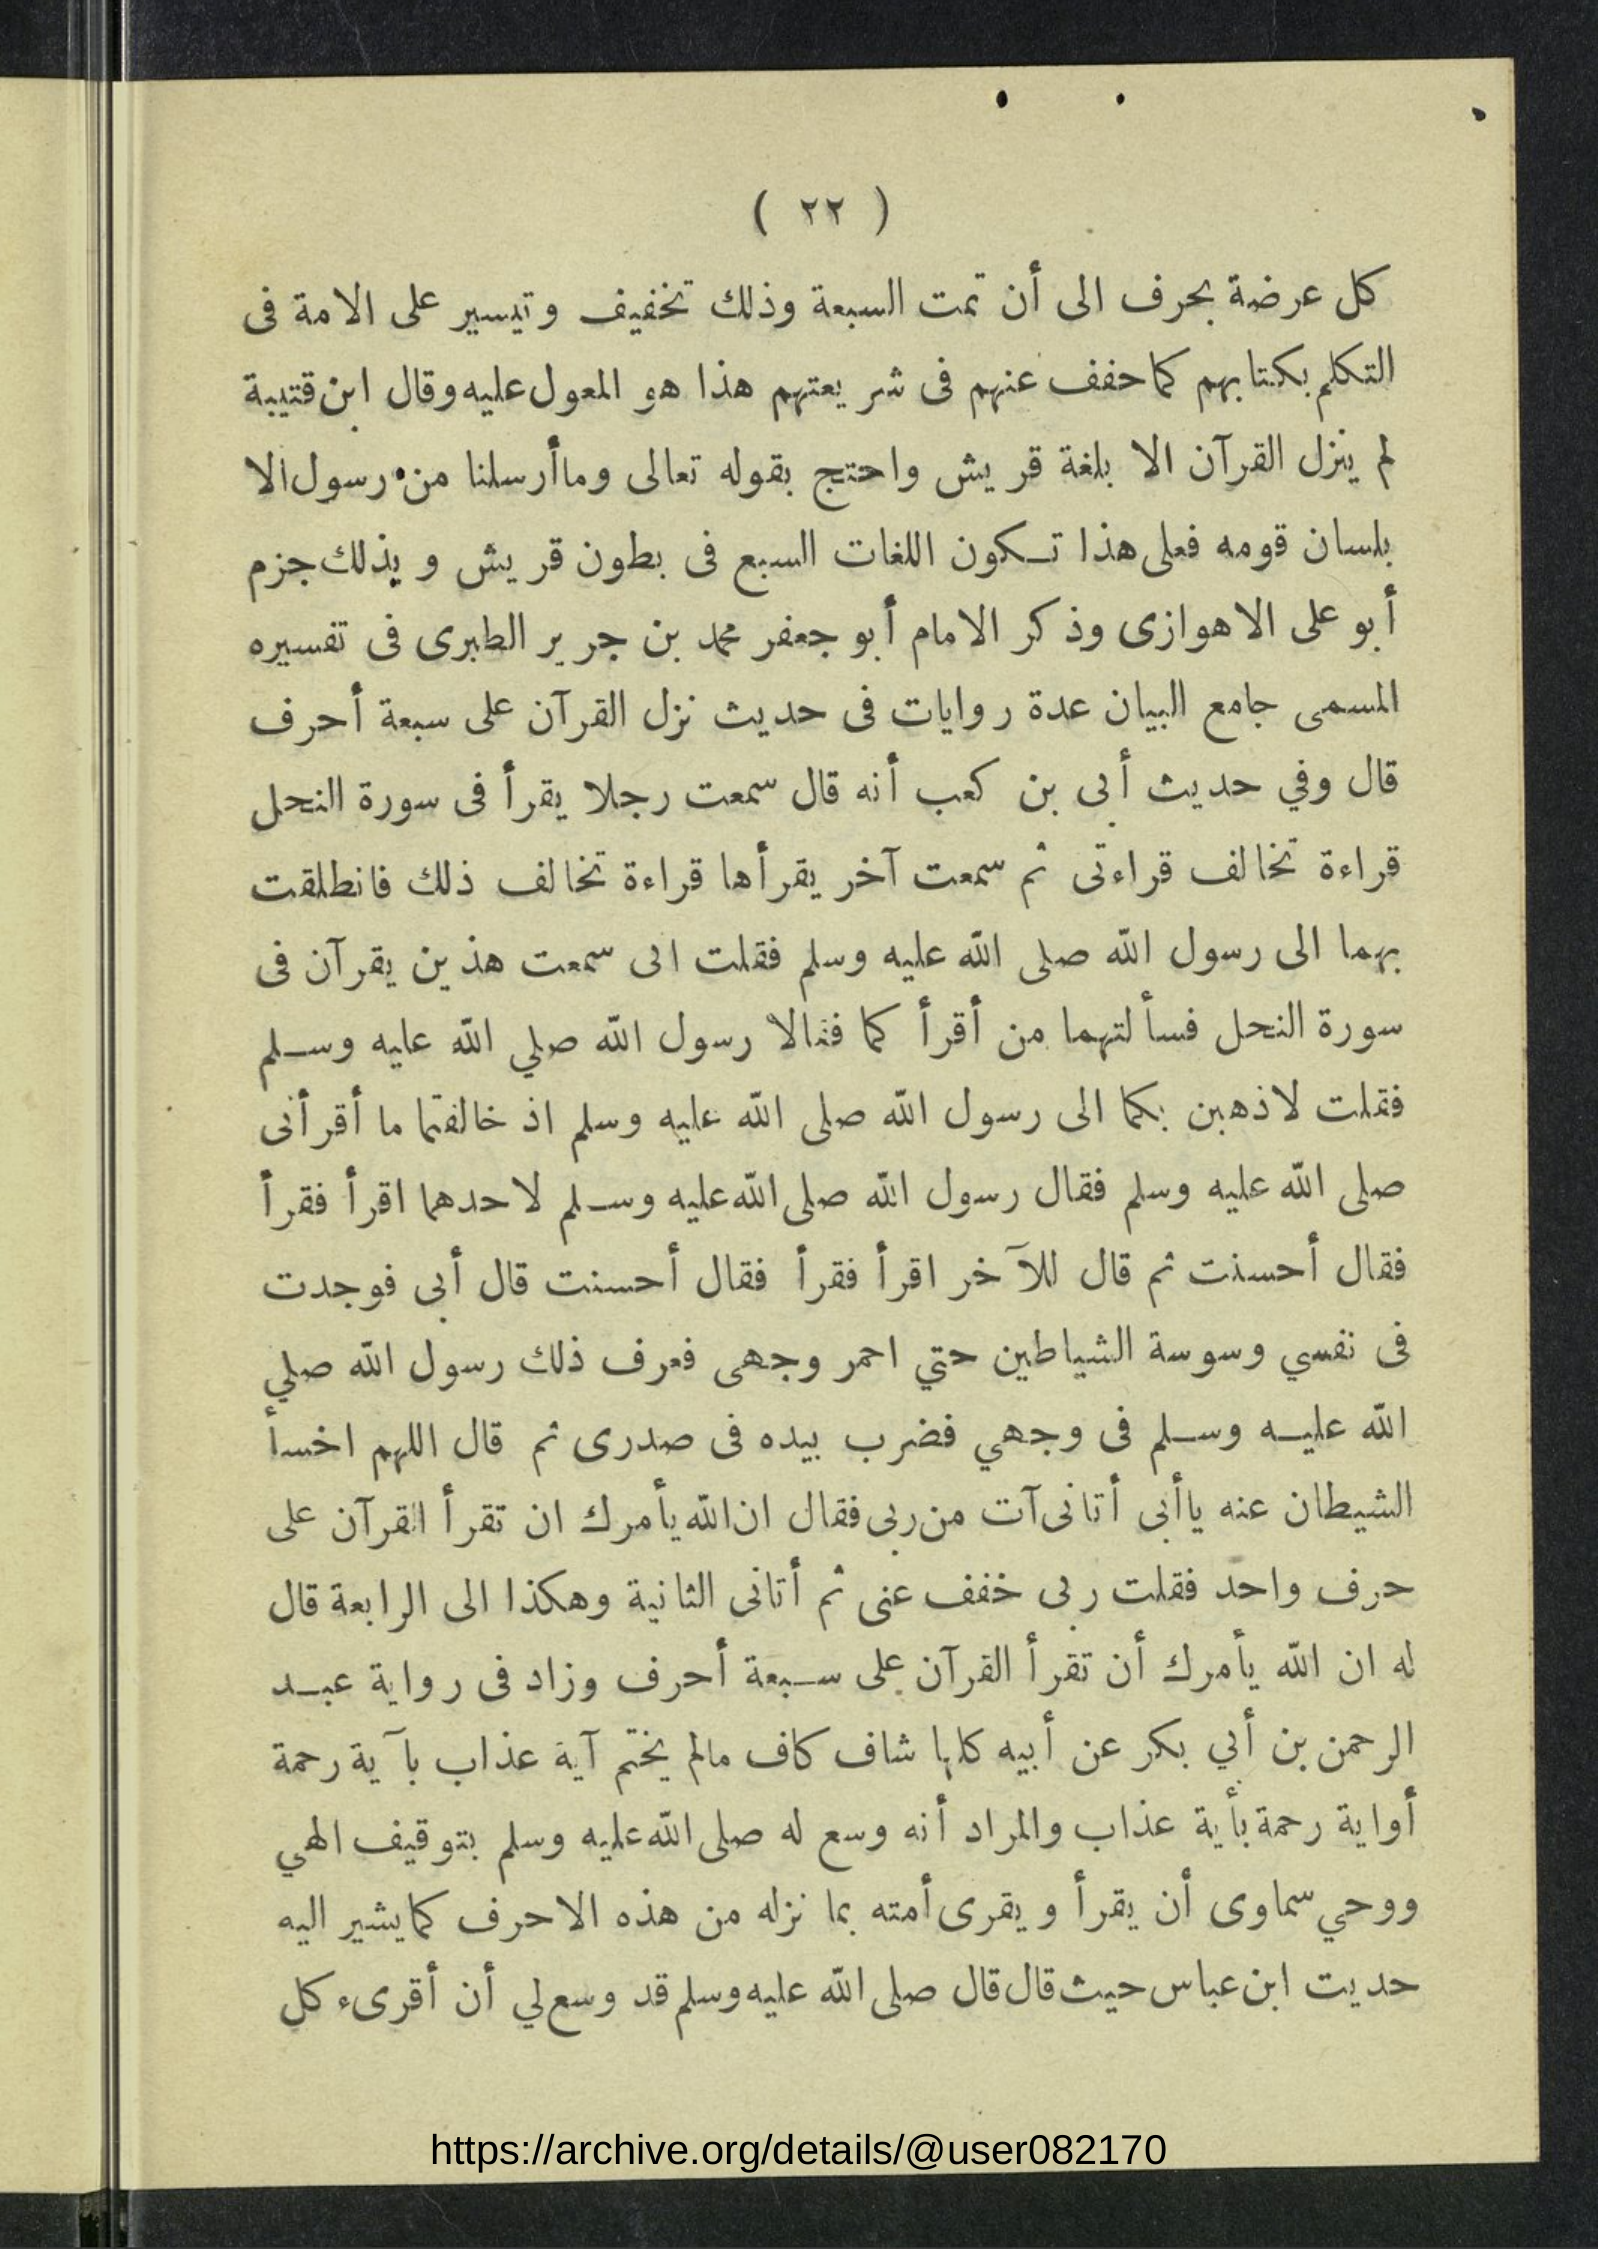 ( ٢٢ )
كل عرضة بحرف الى أن تمت السبعة وذلك تخفيف وتيسير على الامة فى
التكلم بكتابهم كما خفف عنهم فى شريعتهم هذا هو المعول عليه وقال ابن قتيبة
لم ينزل القرآن الا بلغة قريش واحتج بقوله تعالى وما أرسلنا من رسول الا
بلسان قومه فعلى هذا تكون اللغات السبع فى بطون قريش وبذلك جزم
أبو على الاهوازى وذكر الامام أبو جعفر محمد بن جرير الطبرى فى تفسيره
المسمى جامع البيان عدة روايات فى حديث نزل القرآن على سبعة أحرف
قال وفي حديث أبى بن كعب أنه قال سمعت رجلا يقرأ فى سورة النحل
قراءة تخالف قراءتى ثم سمعت آخر يقرأها قراءة تخالف ذلك فانطلقت
بهما الى رسول الله صلى الله عليه وسلم فقلت انى سمعت هذين يقرآن فى
سورة النحل فسألتهما من أقرأ كما فقالا رسول الله صلي الله عليه وسلم
فقلت لاذهبن بكما الى رسول الله صلى الله عليه وسلم اذ خالفتما ما أقرأنى
صلى الله عليه وسلم فقال رسول الله صلى الله عليه وسلم لاحدهما اقرأ فقرأ
فقال أحسنت ثم قال للآخر اقرأ فقرأ فقال أحسنت قال أبى فوجدت
فى نفسي وسوسة الشياطين حتي احمر وجهى فعرف ذلك رسول الله صلي
الله عليه وسلم فى وجهي فضرب بيده فى صدرى ثم قال اللهم اخسأ
الشيطان عنه يا أبى أتانى آت من ربى فقال ان الله يأمرك ان تقرأ القرآن على
حرف واحد فقلت ربى خفف عنى ثم أتانى الثانية وهكذا الى الرابعة قال
له ان الله يأمرك أن تقرأ القرآن على سبعة أحرف وزاد فى رواية عبد
الرحمن بن أبي بكر عن أبيه كلها شاف كاف مالم يختم آية عذاب بآية رحمة
أواية رحمة بأية عذاب والمراد أنه وسع له صلى الله عليه وسلم بتوقيف الهي
ووحي سماوى أن يقرأ ويقرى أمته بما نزله من هذه الاحرف كما يشير اليه
حديت ابن عباس حيث قال قال صلى الله عليه وسلم قد وسع لي أن أقرىء كل
https://archive.org/details/@user082170